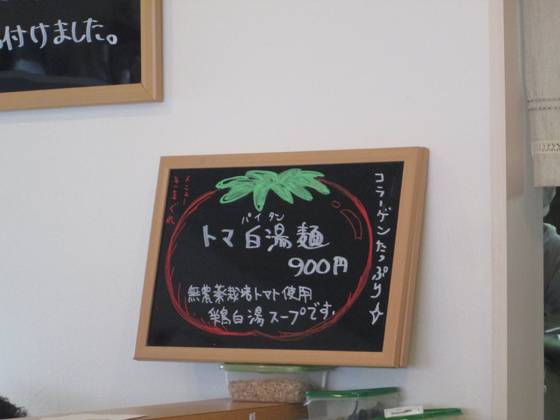 付けました。
きまぐれ
メニュー
コラーゲンたっぷり
パイタン
トマ白湯麺
900円
無農薬栽培トマト使用
鶏白湯スープです。